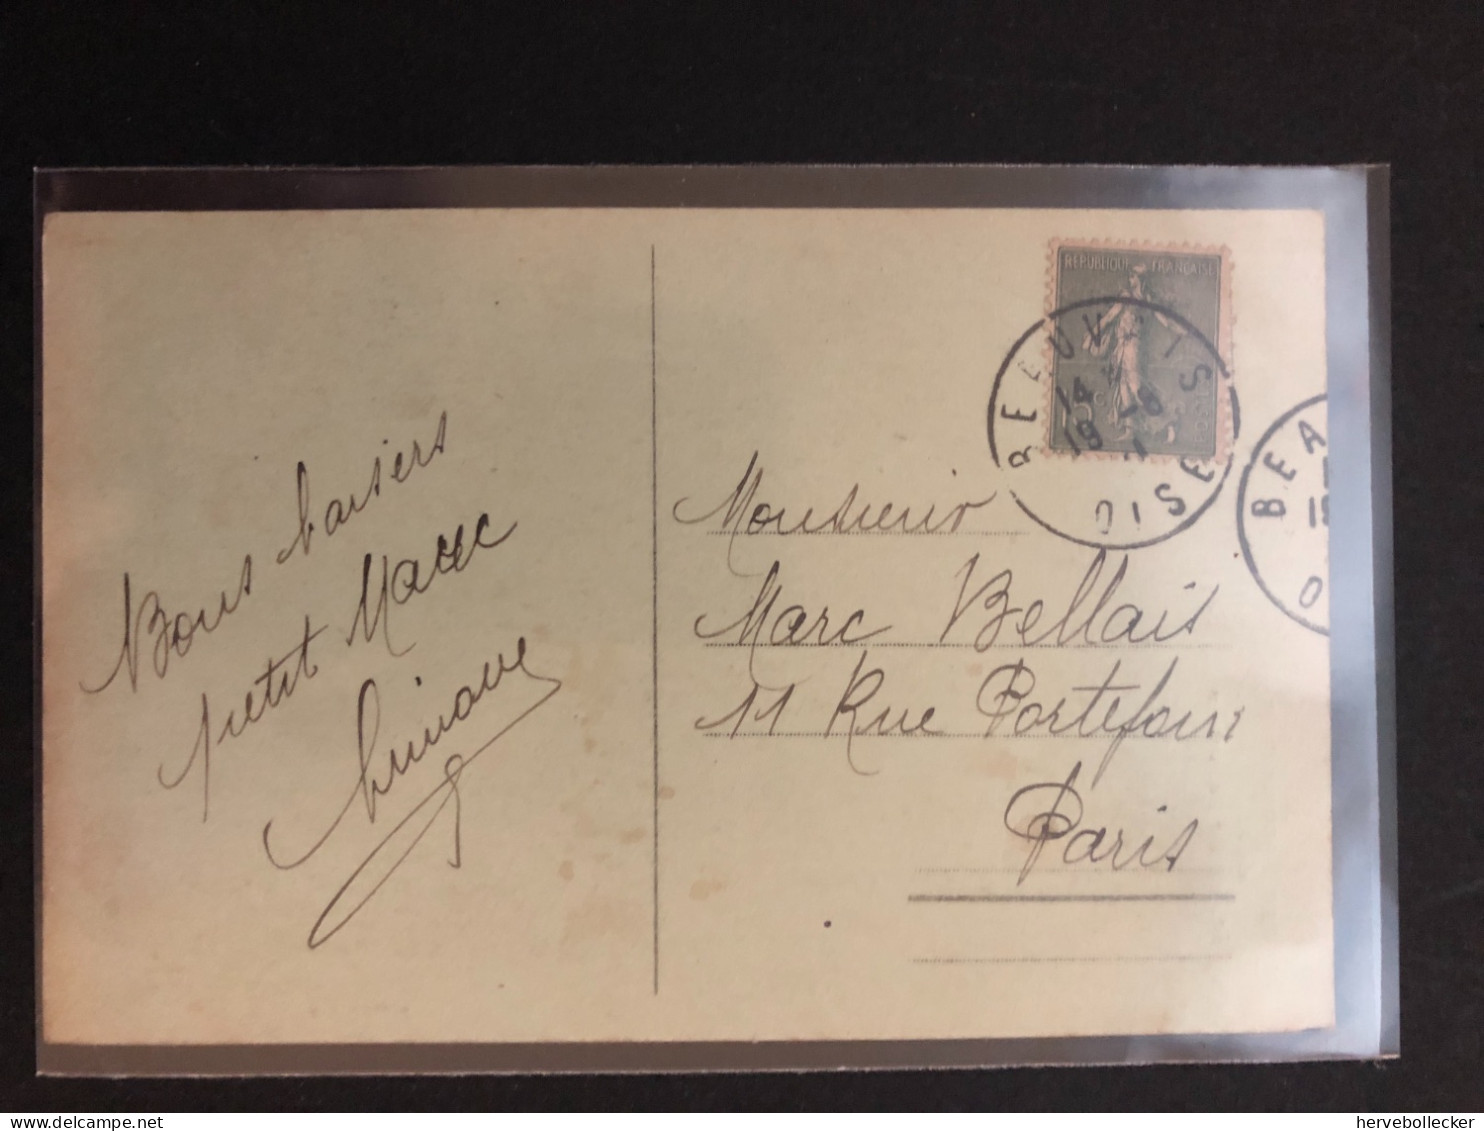 Bons baisers
petit Marc
REPUBLIQUE FRANÇAISE
15c
BEAUVAIS
14
19
OISE
BEA
19
O
Monsieur
Marc Bellais
11 Rue Portefoin
Paris
delcampe.net
hervebollecker